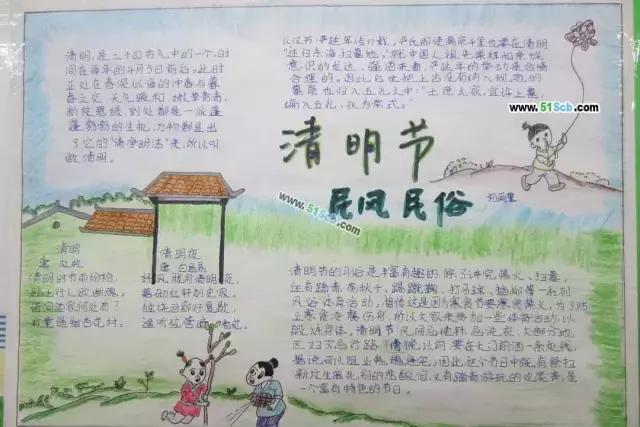 清明，是二十四节气中的一个，时
间在每年的4月5日前后。此时
正处在春深似海的仲春与暮
春之交，天气暖和，嫩草青青，
到处都是一派蓬
蓬勃勃的生机，万物都显出
了它的“清净明洁”来，所以叫
做清明。
严延年
“还归东海扫墓地。”就中国人祖先崇拜和亲族
意识的发达、强固来看，严延年的举动是合情
合理的。因此后世把上古没有纳入规范的
墓祭也归入五礼之中：“士庶之家，宜许上墓，
编入五礼，永为常式。”
www.51Scb.com
清明节
民风民俗
www.51Scb.com
清明
唐 杜牧
清明时节雨纷纷，
路上行人欲断魂。
借问酒家何处有？
牧童遥指杏花村。
清明夜
唐 白居易
好风胧月清明夜，
碧砌红轩刺史家。
独绕回廊行复歇，
遥听弦管暗看花。
清明节的习俗是丰富有趣的，除了讲究禁火、扫墓，
还有踏青、荡秋千、蹴鞠、打马球、插柳等一系列
风俗体育活动。相传这是因为寒食节要寒食禁火，为了防
止寒食冷餐伤身，所以大家来参加一些体育活动，以
锻炼身体。清明节，民间忌使针，忌洗衣，大部分地
区妇女忌行路。傍晚以前，要在大门前洒一条灰线，
据说可以阻止鬼魂进宅。因此，这个节日中既有祭扫
新坟生离死别的悲酸泪，又有踏青游玩的欢笑声，是
一个富有特色的节日。